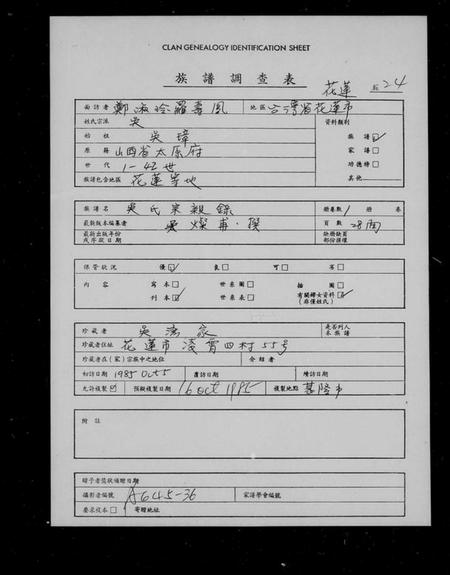 CLAN GENEALOGY IDENTIFICATION SHEET
族譜調查表
花蓮 24
面訪者 鄭淑玲羅壽凰 地區 台灣省花蓮市
姓氏宗派 吳 資料類別
始祖 吳璋 族譜☑
原籍 山西省太原府 家譜□
世代 1-42世 功德榜□
族譜包含地區 花蓮等地 其他
族譜名 吳氏宗親錄 冊卷數 1 冊 卷
最新版本編纂者 吳燦甫·撰 頁數 28面
最新出版年份或序叙日期 缺冊缺頁部份接續
保管狀況 優☑ 良□ 可□ 劣□
內容 寫本□ 世系圖□ 插圖□
刊本☑ 世系表□ 有關婦女資料(非僅姓氏)☑
珍藏者 吳濤家 是否列入本族譜
珍藏者住址 花蓮市凌霄四村55号
珍藏者氏(家)宗族中之地位 介紹者
初訪日期 1985 Oct 5 覆訪日期 續訪日期
允許複製☑ 預擬複製日期 16 oct 1985 複製地點 基隆市
附註
贈予者簽狀捐贈日期
攝影者編號 A645-36 家譜學會編號
要求投本□ 寄贈地址